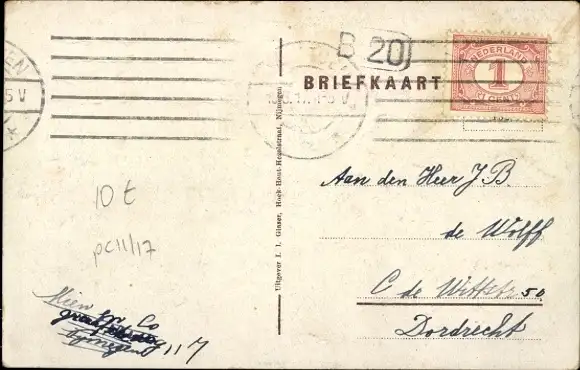 B 20
BRIEFKAART
NEDERLAND
1
CENT
5 V
Aan den Heer J. B.
de Wolff
C de Wittstr 50
Dordrecht
10 t
pc11/17
Uitgever I. I. Ginser, Hoek Hout-Hezelstraat, Nijmegen
Mien en Co
Nijmegen 11 7